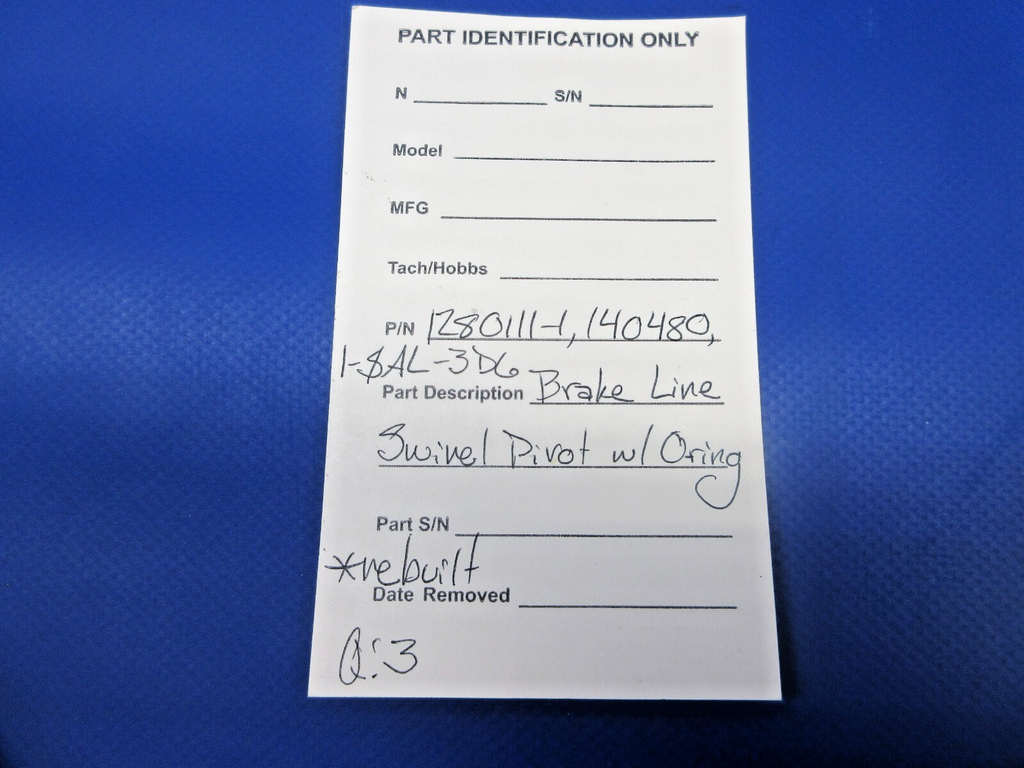 PART IDENTIFICATION ONLY
N S/N
Model
MFG
Tach/Hobbs
P/N 1280111-1, 140480,
1-$AL-3D6
Part Description Brake Line
Swivel Pivot w/ Oring
Part S/N
*rebuilt
Date Removed
Q:3